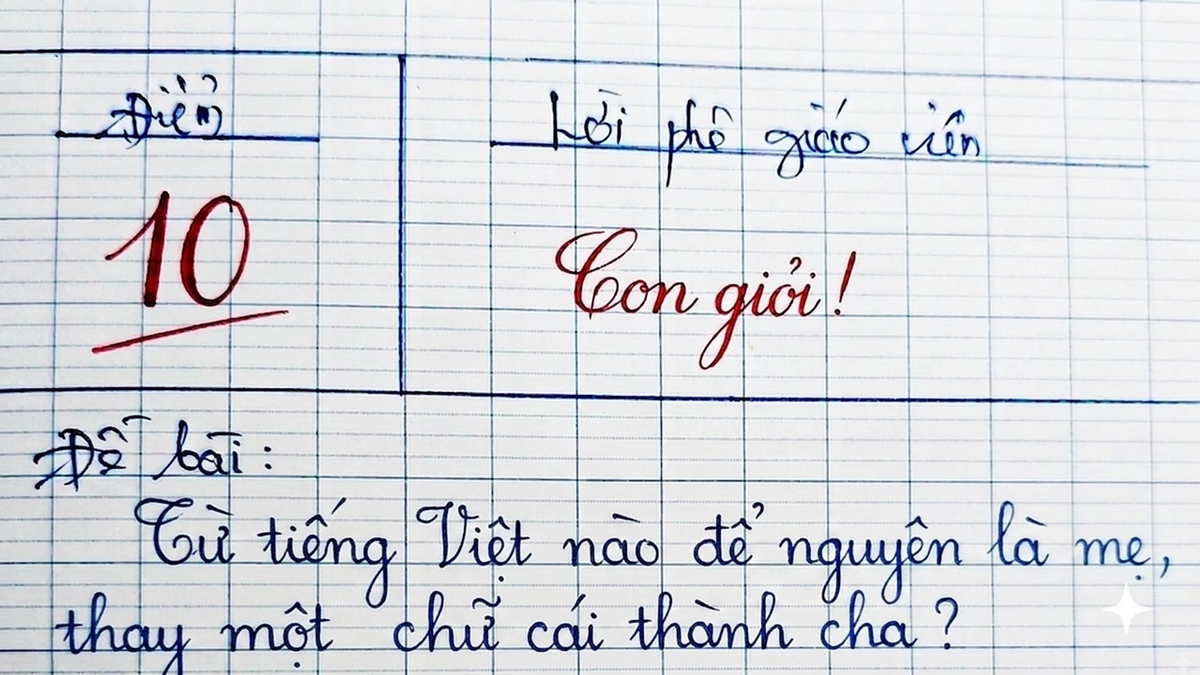 Điểm
Lời phê giáo viên
10
Con giỏi!
Đề bài:
Từ tiếng Việt nào để nguyên là mẹ,
thay một chữ cái thành cha?